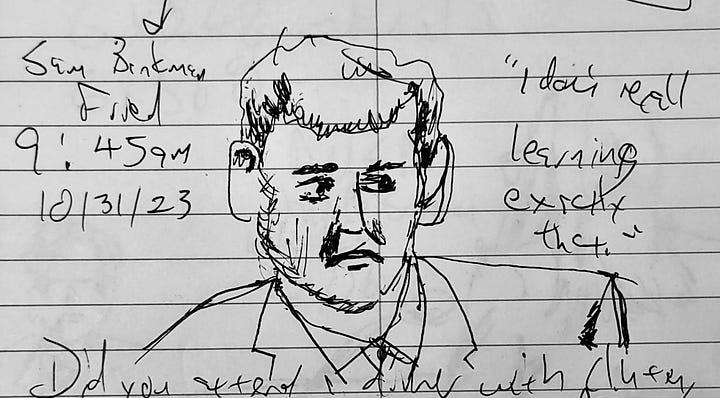 Sam Bankman
Fried
9:45am
10/31/23
"I don't recall
learning
exactly
that."
Did you attend a dinner with